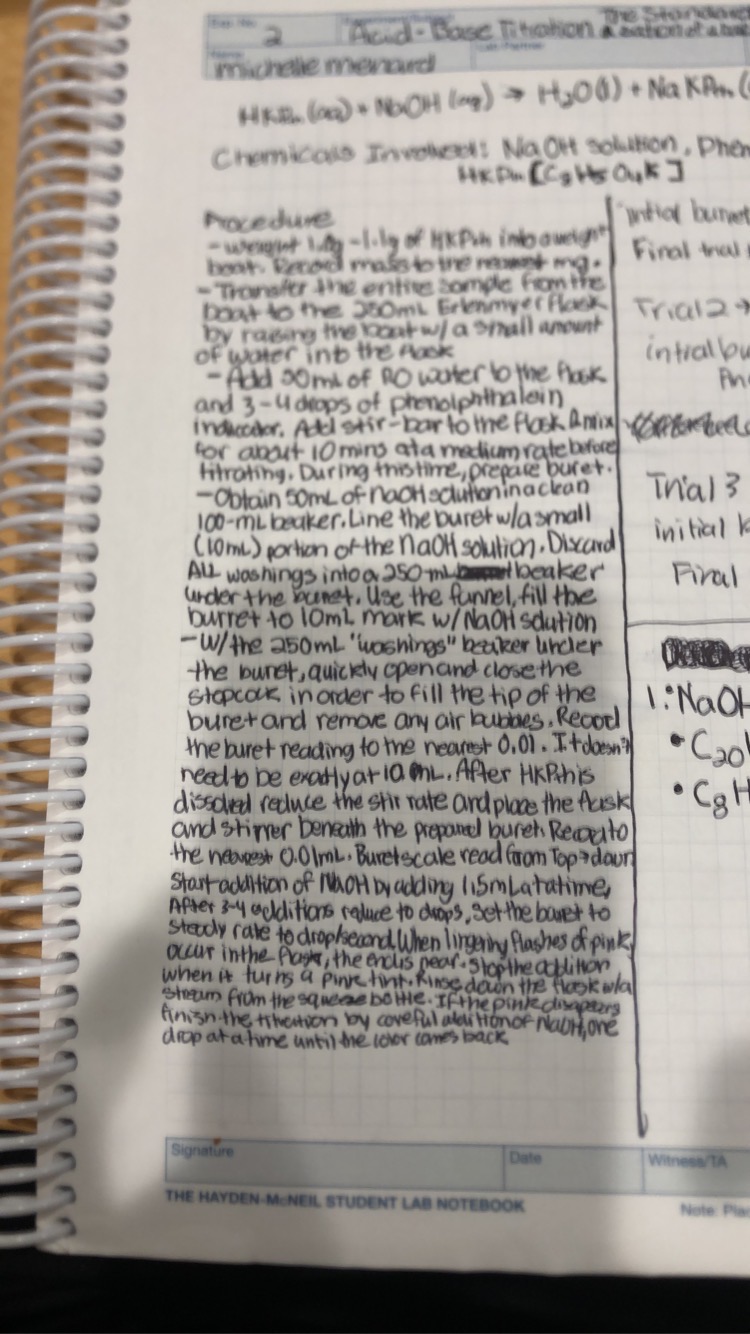 Exp. No. 2 Acid-Base Titration The Standard
Name michelle menard
HKPh (aq) + NaOH (aq) → H₂O(l) + NaKPh
Chemicals Involved: NaOH solution, Phen
HKPh [C8H5O4K]
Procedure
- weight 1.0g-1.1g of HKPhh into a weight
boat. Record mass to the nearest mg.
- Transfer the entire sample from the
boat to the 250mL Erlenmyer flask
by raising the boat w/ a small amount
of water into the flask
- Add 50mL of RO water to the flask
and 3-4 drops of phenolphthalein
indicador. Add stir-bar to the flask & mix
for about 10 mins at a medium rate before
titrating. During this time, prepare buret.
- Obtain 50mL of NaOH solution in a clean
100-mL beaker. Line the buret w/a small
(10mL) portion of the NaOH solution. Discard
ALL washings into a 250-mL beaker
under the buret. Use the funnel, fill the
burret to 10mL mark w/ NaOH solution
- W/ the 250mL "washings" beaker under
the buret, quickly open and close the
stopcock in order to fill the tip of the
buret and remove any air bubbles. Record
the buret reading to the nearest 0.01. It doesn't
need to be exactly at 10 mL. After HKPh is
dissolved reduce the stir rate and place the flask
and stirrer beneath the prepared buret. Record to
the nearest 0.01mL. Buret scale read from Top→down
Start addition of NaOH by adding 1.5mL at a time,
After 3-4 additions reduce to drops, set the buret to
steady rate to drop/second. When lingering flashes of pink
occur in the flask, the end is near. Stop the addition
when it turns a pink tint. Rinse down the flask w/a
stream from the squeeze bottle. If the pink disappears
finish the titration by careful addition of NaOH, one
drop at a time until the color comes back
intial buret
Final trial
Trial 2 →
intial bu
Trial 3
initial b
Final
1: NaOH
• C20
• C8H
Signature
Date
Witness/TA
THE HAYDEN-McNEIL STUDENT LAB NOTEBOOK
Note: Plac